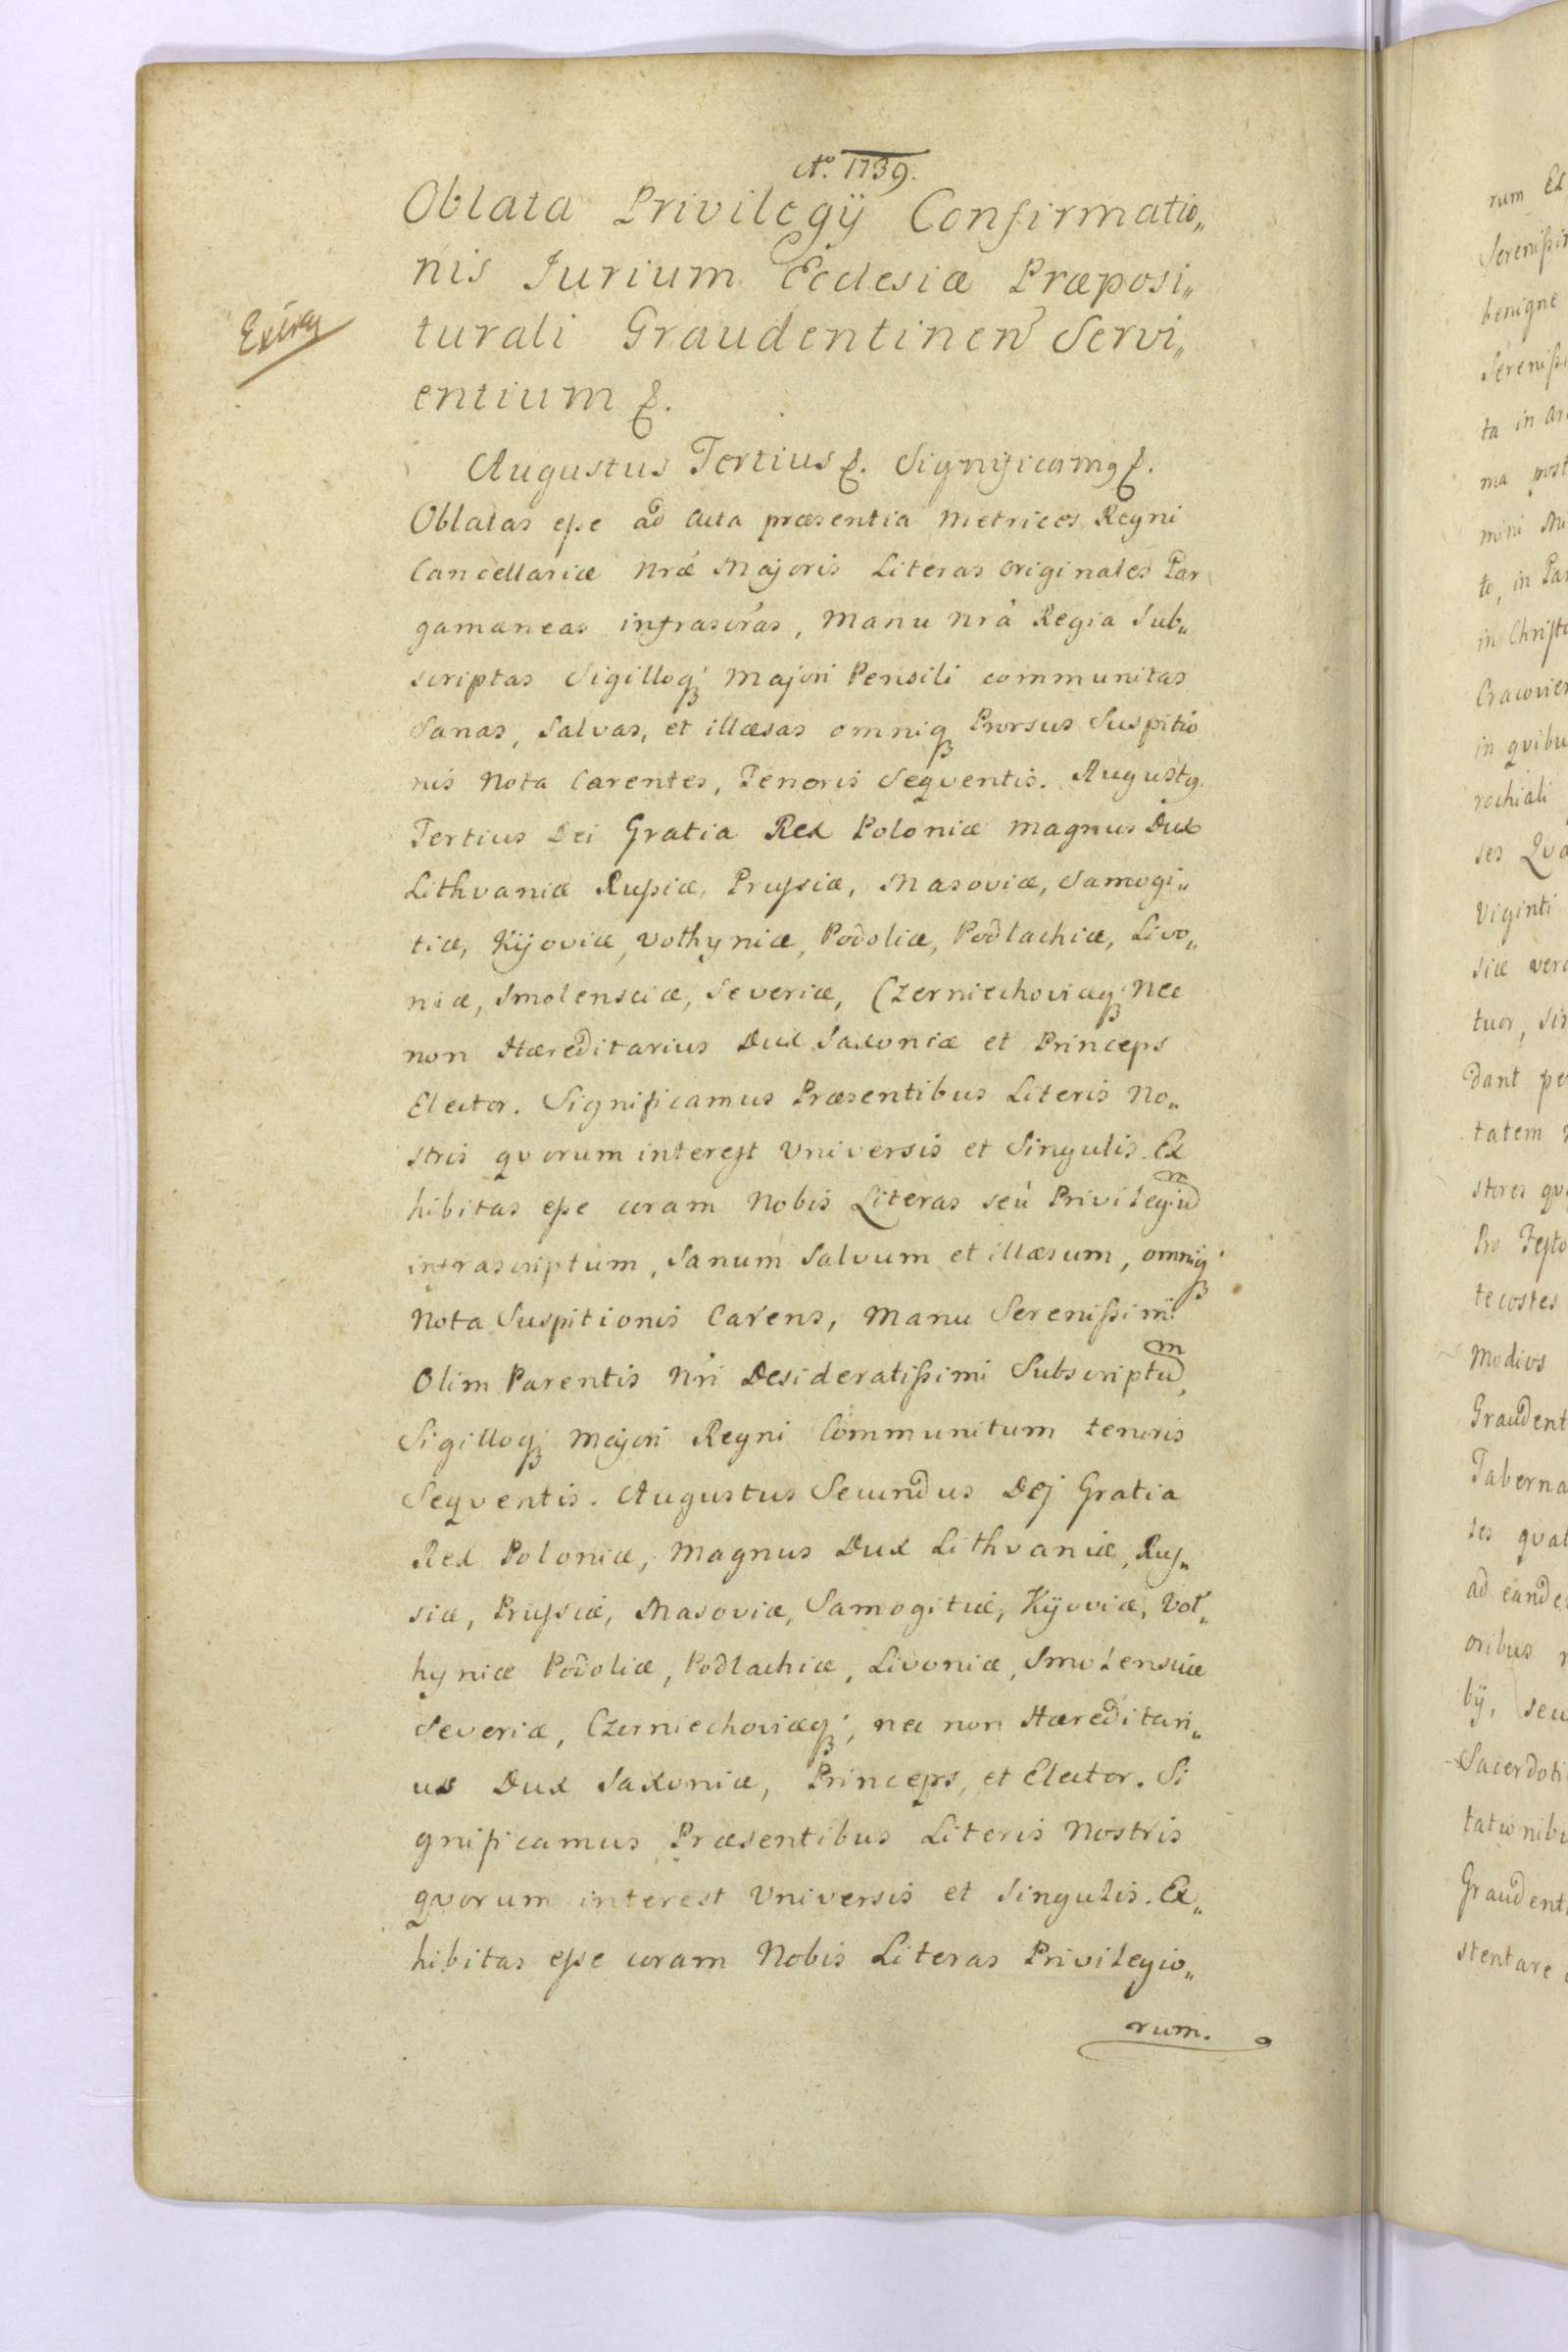 Aº. 1739.
Oblata Privilegÿ Confirmatio„
nis Jurium Ecclesiæ Præposi„
turali Graudentinen Servi„
entium &.
Augustus Tertius &. Significamꝰ &.
Oblatas eſse ad Acta præsentia Metrices Regni
Cancellariæ Nræ Majoris Literas Originales Par
gamaneas infrascras, Manu Nra Regia Sub„
scriptas Sigilloq; Majori Pensili communitas
Sanas, Salvas, et illæsas omniq; Prorsus Suspitio
nis Nota Carentes, Tenoris Seqventis. Augustꝰ
Tertius Dei Gratia Rex Poloniæ Magnus Dux
Lithvaniæ Ruſsiæ, Pruſsiæ, Masoviæ, Samogi„
tiæ, Kÿoviæ, Volhyniæ, Podoliæ, Podlachiæ, Livo„
niæ, Smolensciæ, Severiæ, Czerniechoviæq; Nec
non Hæreditarius Dux Saxoniæ et Princeps
Elector. Significamus Præsentibus Literis No„
stris qvorum intereſt Universis et Singulis. Ex
hibitas eſse coram Nobis Literas seu Privilegiũ
infrascriptum, Sanum Salvum et illæsum, omniq;
Nota Suspitionis Carens, Manu Sereniſsimi
Olim Parentis Nri Desideratiſsimi Subscriptũ,
Sigilloq; Majori Regni Communitum tenoris
Seqventis. Augustus Secundus Dej Gratia
Rex Poloniæ, Magnus Dux Lithvaniæ, Ruſ„
siæ, Pruſsiæ, Masoviæ, Samogitiæ, Kÿoviæ, Vol„
hyniæ Podoliæ, Podlachiæ, Livoniæ, Smolensciæ
Severiæ, Czerniechoviæq;, nec non Hæreditari„
us Dux Saxoniæ, Princeps, et Elector. Si
gnificamus Præsentibus Literis Nostris
qvorum interest Universis et Singulis. Ex„
hibitas eſse coram Nobis Literas Privilegio„
rum.
rum Ex
benigne
ta in
ma post
mini
to, in
in Chriſt
in qvibu
rochiali
ses
Viginti
siæ vero
tuor,
dant
tatem
stores
Pro Feſto
tecostes
Modios
Graudent
Taberna
ses
ad eande
oribus
bÿ, seu
Sacerdoti
tationib
Graudent
stentare